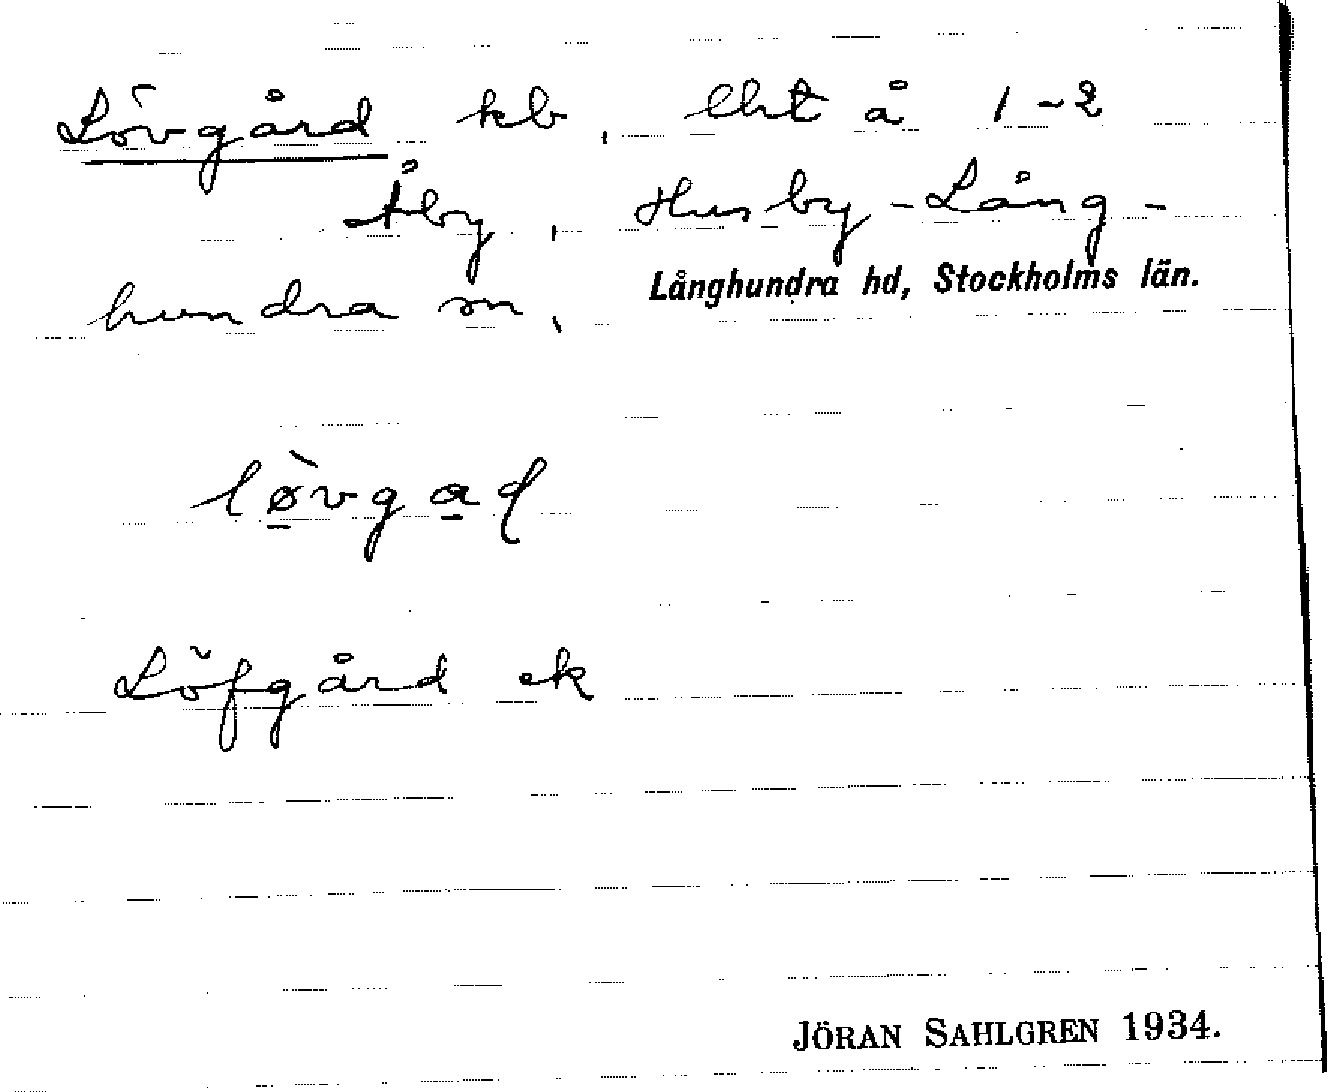 Lövgård kb, lht å 1-2
Åby, Husby-Lång-
hundra sn,
Långhundra hd, Stockholms län.
lø̀vgaḍ
Löfgård ek
JÖRAN SAHLGREN 1934.